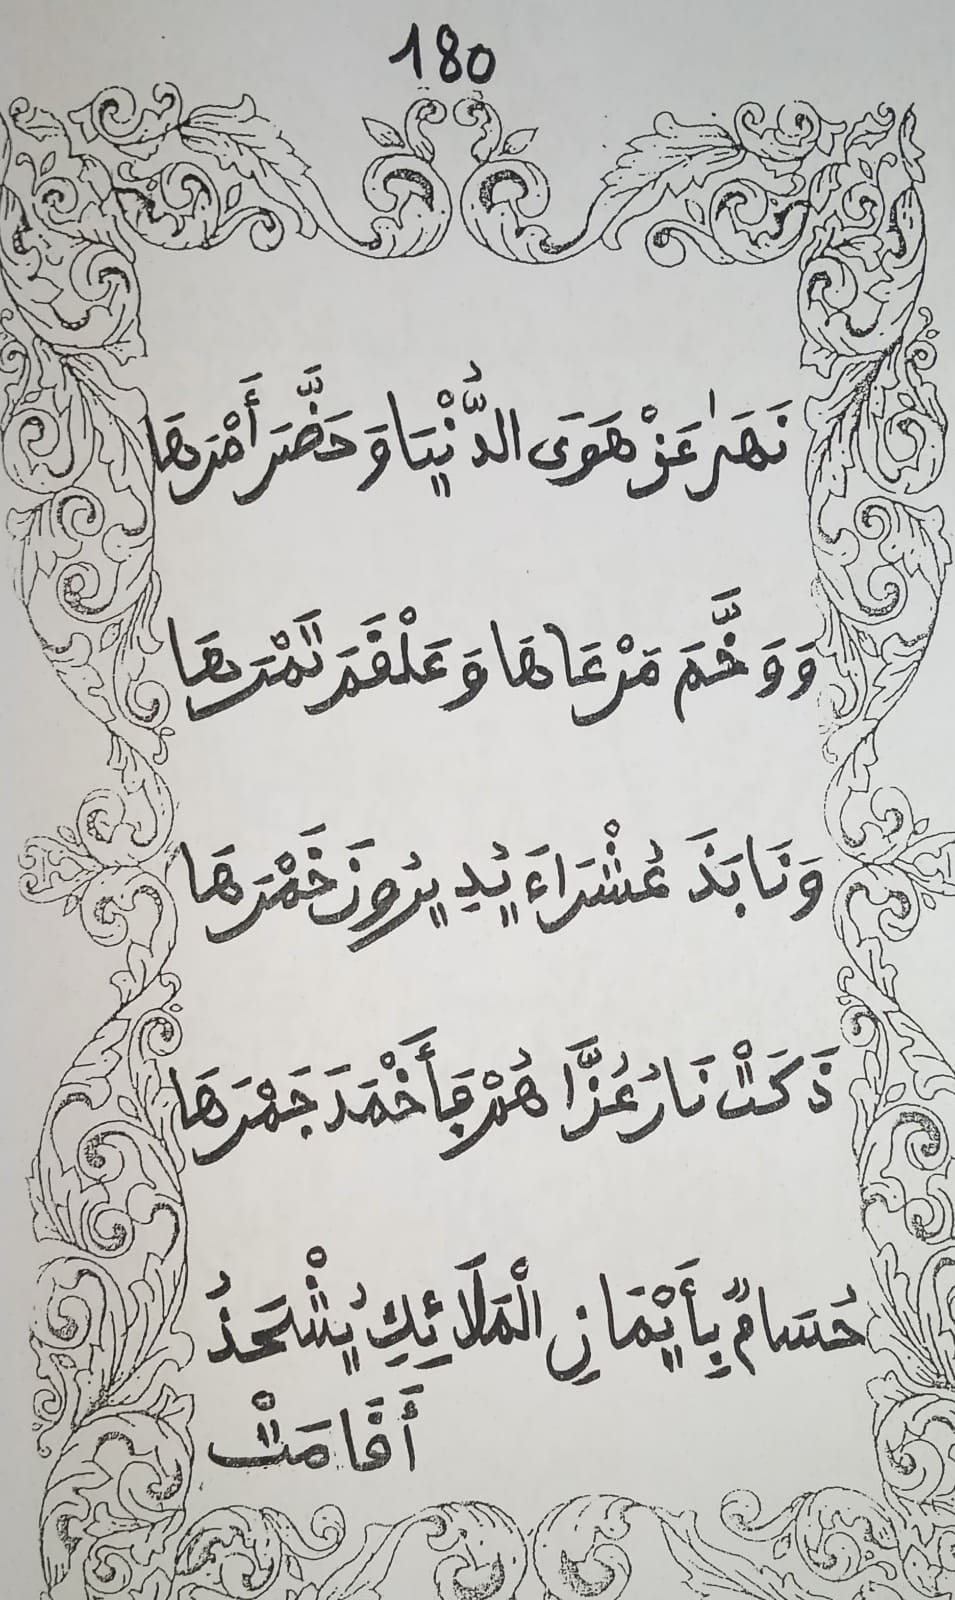 180
نَهَىٰ عَنْ هَوَى الدُّنْيَا وَحَضَّرَ أَمْرَهَا
وَوَخَّمَ مَرْعَاهَا وَعَلْقَمَ تَمْرَهَا
وَنَابَذَ عُشْرَاءَ يُدِيرُونَ خَمْرَهَا
ذَكَتْ نَارُ عُزَّاهُمْ فَأَخْمَدَ جَمْرَهَا
حُسَامٌ بِأَيْمَانِ الْمَلَائِكِ يُشْحَذُ
أَقَامَتْ